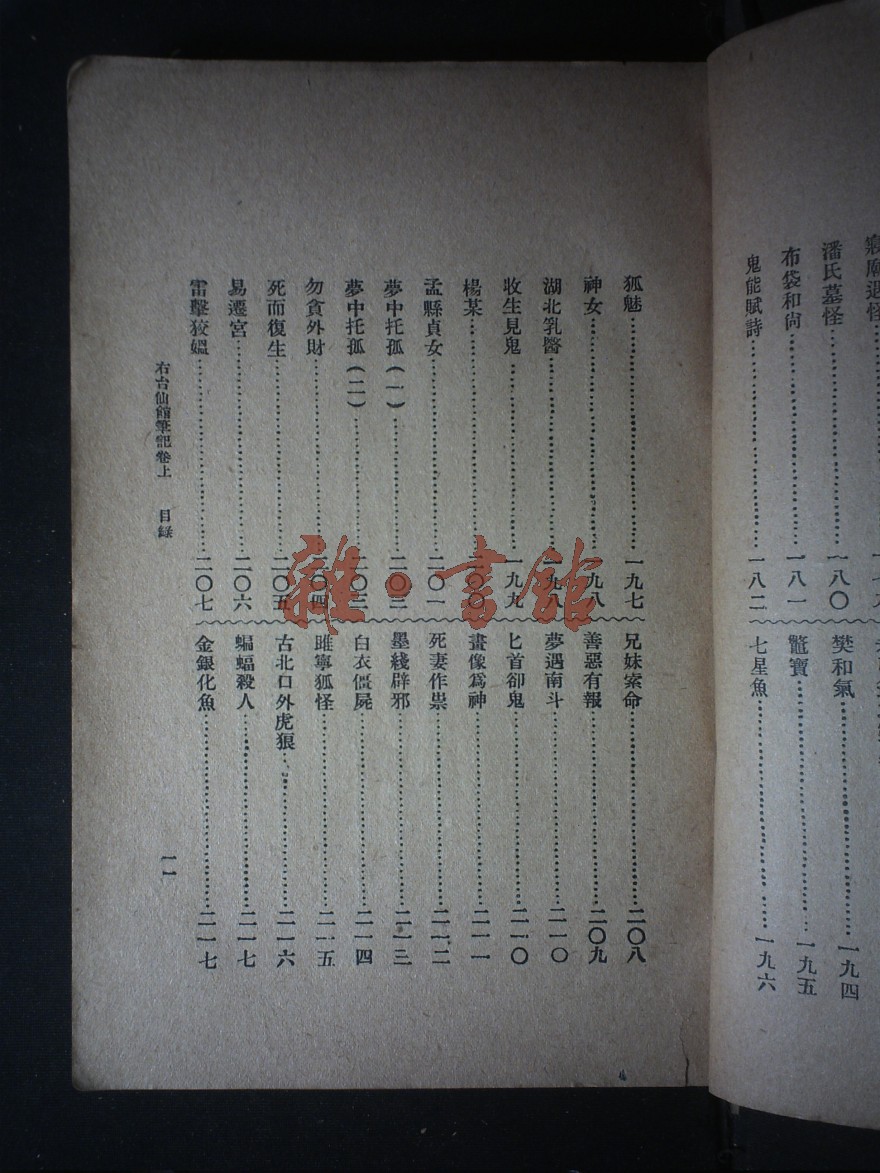 潘氏墓怪……一八〇
布袋和尙……一八一
鬼能賦詩……一八二
樊和氣……一九四
鼈寶……一九五
七星魚……一九六
狐魅……一九七
神女……一九八
湖北乳醫……一九八
收生見鬼……一九九
楊某……二〇〇
孟縣貞女……二〇一
夢中托孤(一)……二〇三
夢中托孤(二)……二〇三
勿貪外財……二〇四
死而復生……二〇五
易遷宮……二〇六
雷擊狡媼……二〇七
兄妹索命……二〇八
善惡有報……二〇九
夢遇南斗……二一〇
匕首卻鬼……二一〇
畫像爲神……二一一
死妻作祟……二一二
墨綫辟邪……二一三
白衣僵屍……二一四
睢寧狐怪……二一五
古北口外虎狼……二一六
蝙蝠殺人……二一七
金銀化魚……二一七
右台仙館筆記卷上 目錄 一一
雜·書館